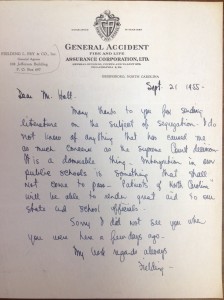 GENERAL ACCIDENT
FIRE AND LIFE
ASSURANCE CORPORATION, LTD.
FIELDING L. FRY & CO., Inc.
General Agents
Jefferson Building
GREENSBORO, NORTH CAROLINA
Sept 21 1955 -
Dear Mr. Hall.
Many thanks to you for sending
literature on the subject of segregation. I do
not know of anything that has caused me
as much concern as the Supreme Court decision.
It is a damnable thing. Integration in our
public schools is something that shall
not come to pass - Patriots of North Carolina"
will be able to render great aid to our
state and school officials.
Sorry I did not see you when
you were here a few days ago.
My best regards always
Fielding -